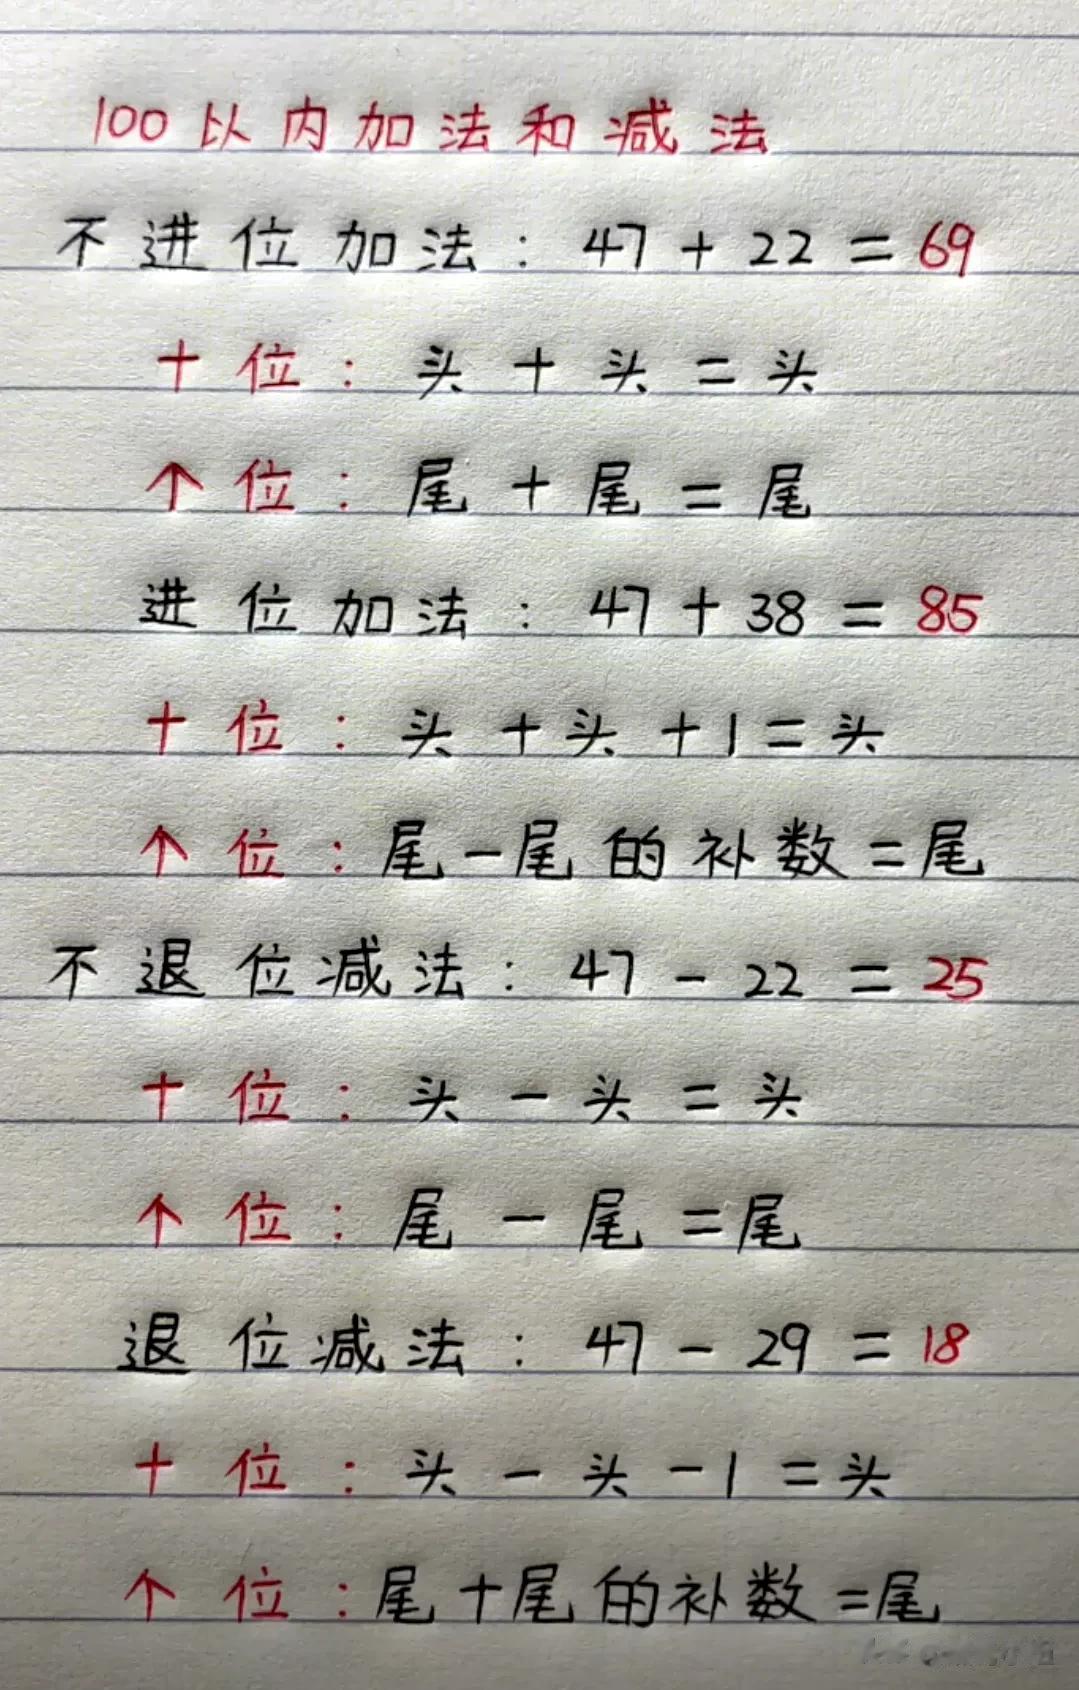 100以内加法和减法
不进位加法：47+22=69
十位：头+头=头
个位：尾+尾=尾
进位加法：47+38=85
十位：头+头+1=头
个位：尾-尾的补数=尾
不退位减法：47-22=25
十位：头-头=头
个位：尾-尾=尾
退位减法：47-29=18
十位：头-头-1=头
个位：尾+尾的补数=尾